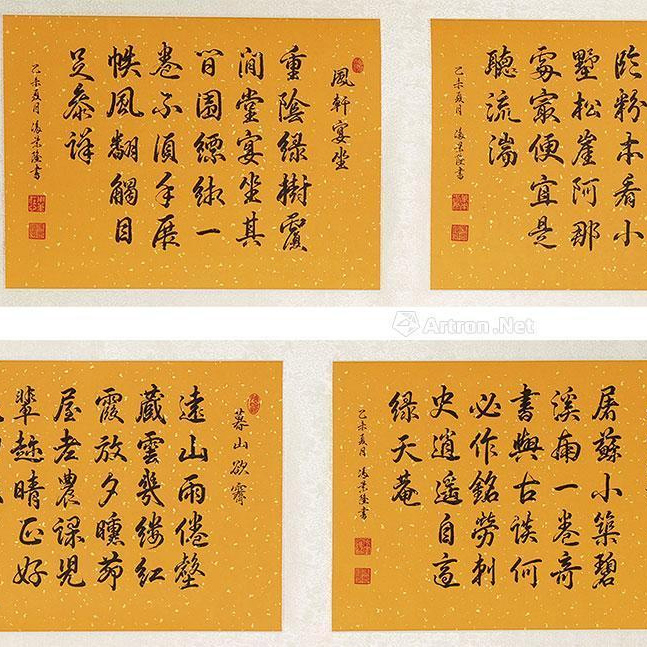 粉本看小
墅松崖阿那
處最便宜是
聽流湍
乙未夏月 書
風軒宴坐
重陰綠樹覆
澗堂宴坐其
間圖縹緗一
卷不須手展
帙風翻觸目
足參詳
乙未夏月 書
Artron.Net
屠蘇小築碧
溪南一卷奇
書與古談何
必作銘勞刺
史逍遙自適
綠天菴
乙未夏月 書
暮山欲霽
遠山雨倦壑
藏雲幾縷紅
霞放夕曛茆
屋老農課兒
輩趁晴正好